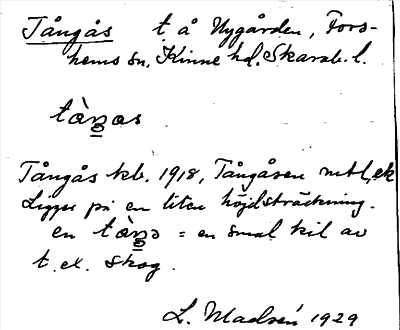 Tångås t å Nygården, Fors-
hems sn, Kinne hd. Skarab. l.
tàŋas
Tångås kb. 1918, Tångåsen mtl, ek
Ligger på en liten höjdsträckning.
en tàŋə = en smal kil av
t. ex. skog.
L. Madsén 1929